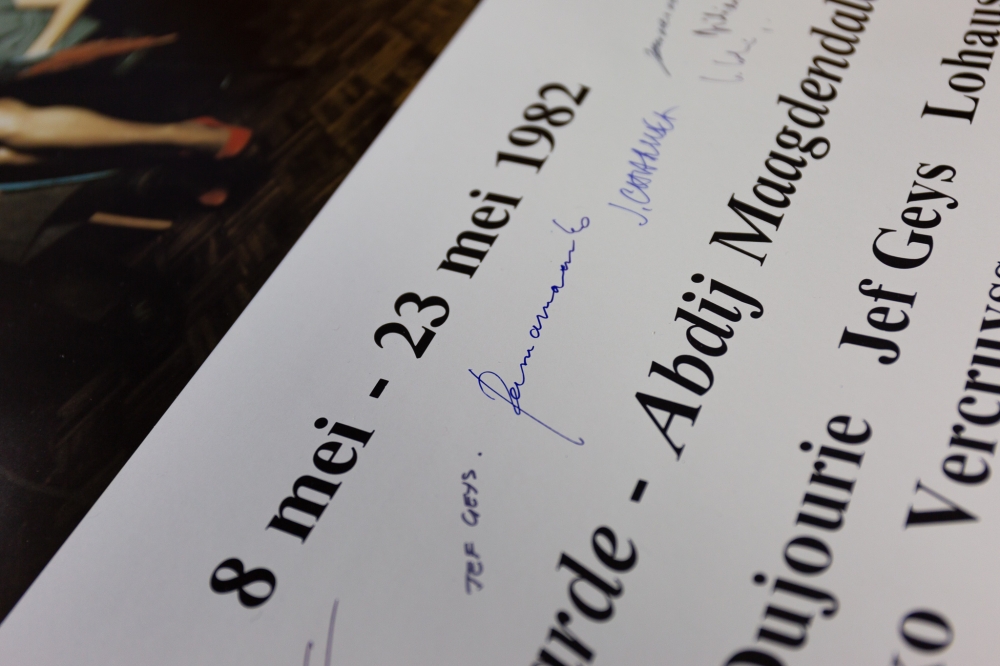 8 mei - 23 mei 1982
JEF GEYS.
arde - Abdij Maagdendal
Dujourie Jef Geys Lohaus
o Vercruyss